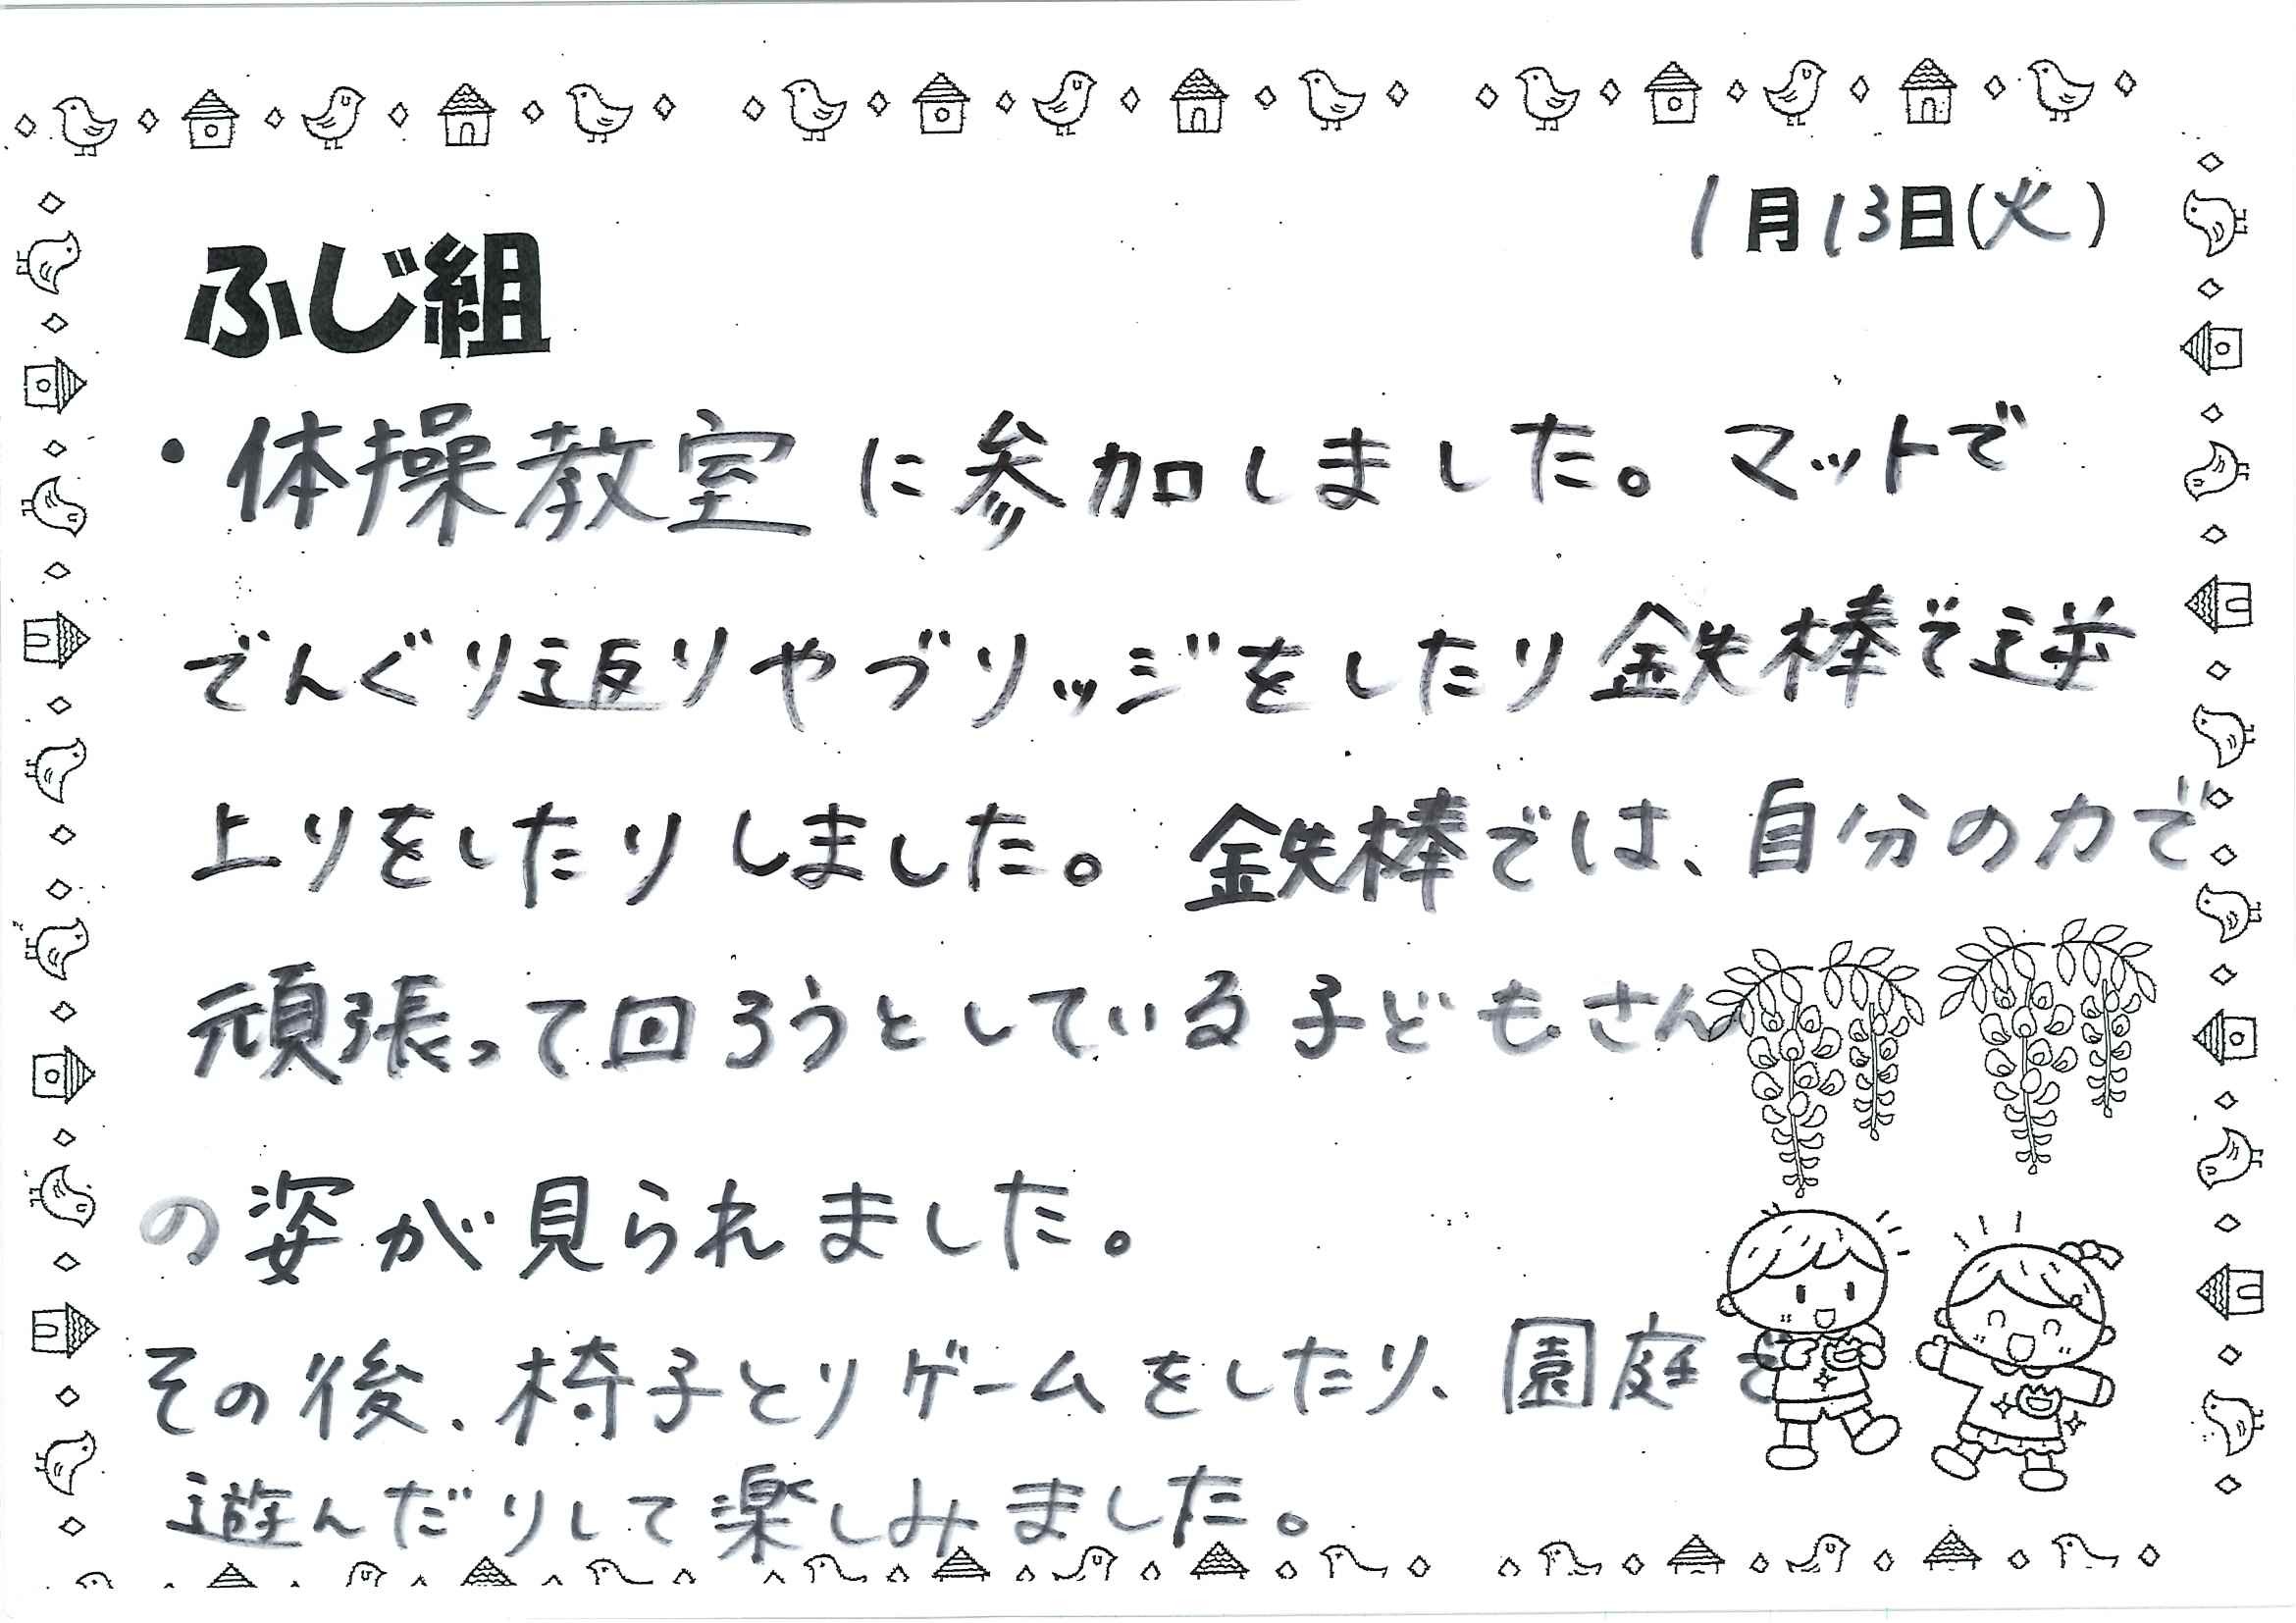 1月13日(火)
ふじ組
・体操教室に参加しました。マットで
でんぐり返りやブリッジをしたり鉄棒で逆
上りをしたりしました。鉄棒では、自分の力で
頑張って回ろうとしている子どもさん
の姿が見られました。
その後、椅子とりゲームをしたり、園庭で
遊んだりして楽しみました。